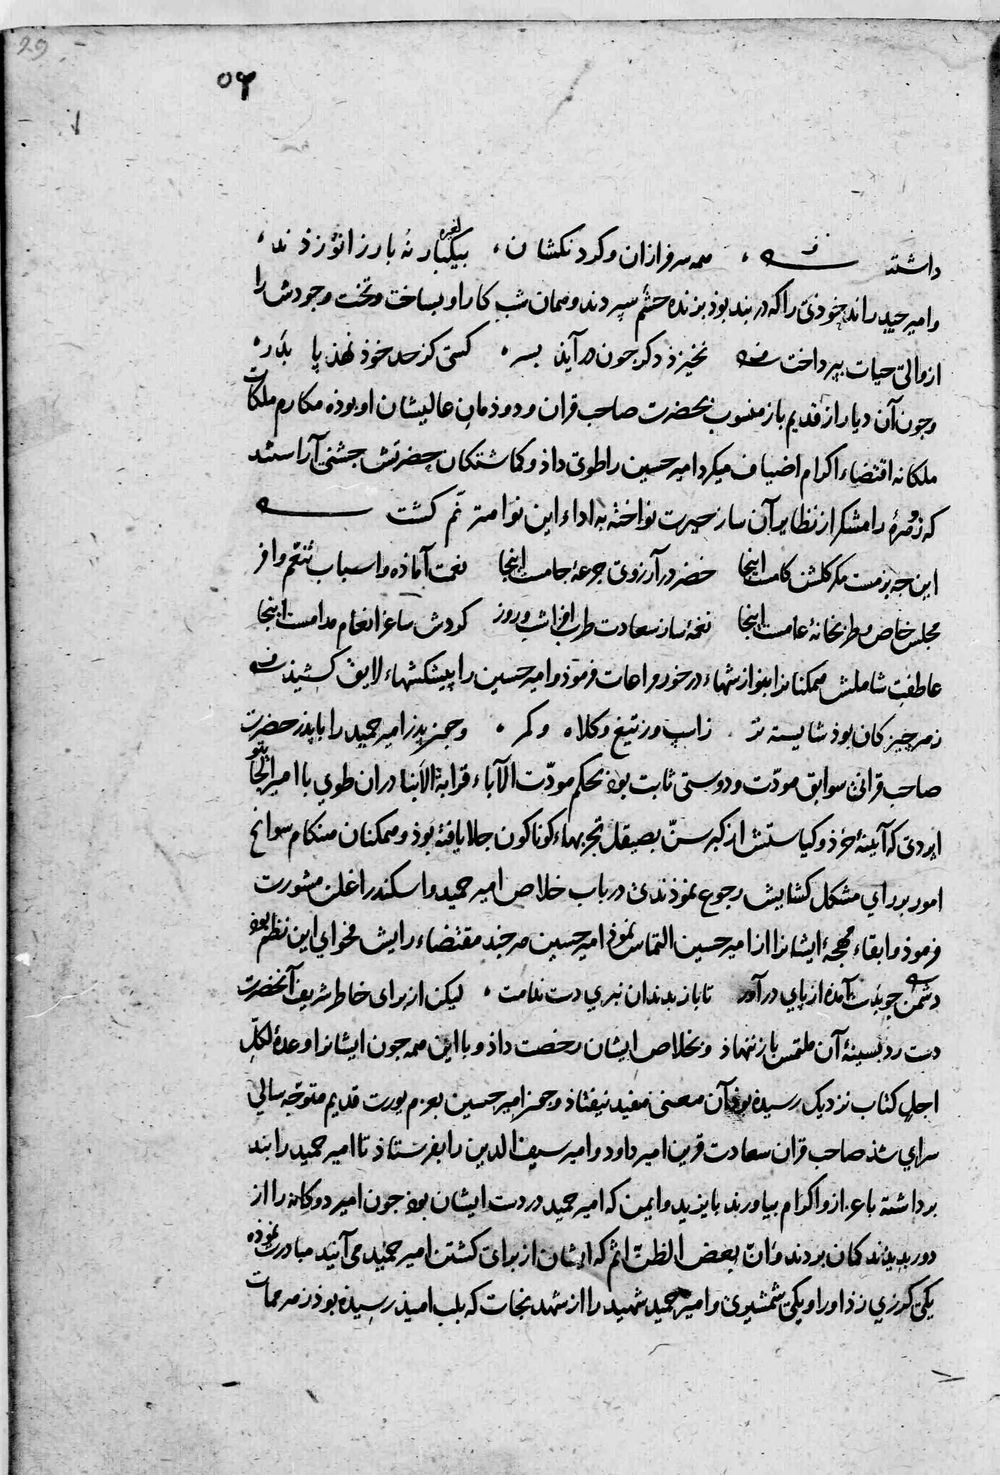 29
۵۴
داشته همه سرفرازان و کردنکشان بیکبار نه بار زانو زدند
و امیر حیدر اندخودی را که در بند بود بزنده حشم سپردند و همان شب کار او بساخت و تخت وجودش را
از والی حیات بپرداخت نخیزد دکر جون در آید بسر کسی کز حد خود نهذ پا بدر
و جون آن دیار از قدیم باز منسوب بحضرت صاحب قران و دودمان عالیشان او بوذه مکارم ملکات
ملکانه اقتضاء اکرام اضیاف میکرد امیر حسین را طوی داذ و کماشتکان حضرتش جشنی آراستند
که زهرهٔ رامشکر از نظایر آن ساز حیرت نواخته به اداء این نوا مترنّم کشت
این جه بزمست مکر کلشن کامست اینجا خضر در آرزوی جرعهٔ جامست اینجا نعمت آماذه و اسباب تنعّم وافر
مجلس خاص و طربخانهٔ عامست اینجا نغمهٔ ساز سعادت طرب افزا شب و روز کردش ساغر انعام مدامست اینجا
عاطفت شاملش همکنانرا بنوازشهاء در خور مراعات فرموذ و امیر حسین را پیشکشهاء لایق کشیذ
ز هر جیز کان بوذ شایسته تر ز اسپ و ز تیغ و کلاه و کمر و جون پدر امیر حمید را با پدر حضرت
صاحب قرانی سوابق مودّت و دوستی ثابت بوذ بحکم مودّت الآباء قرابة الأبناء دران طوی با امیر الجایتو
اپردی که آینهٔ خرد و کیاستش از کبر سنّ بصیقل تجربهاء کوناکون جلا یافته بوذ و همکنان هنکام سوانح
امور برای مشکل کشایش رجوع نموذندی در باب خلاص امیر حمید و اسکندر اغلن مشورت
فرموذ و ابقاء مهجهٔ ایشانرا از امیر حسین التماس نموذ امیر حسین هر جند مقتضاء رایش فحوای این نظم بوذ
دشمن جو بدست آمده از پای در آور تا باز بدندان نبری دست ندامت لیکن از برای خاطر شریف آنحضرت
دست رد بسینهٔ آن ملتمس باز ننهاذ و بخلاص ایشان رخصت داذ و با این همه جون ایشانرا وعدهٔ لکلّ
اجل کتاب نزدیک رسیده بوذ آن معنی مفید نیفتاذ و جون امیر حسین بعزم یورت قدیم متوجّه سالی
سرای شذ صاحب قران سعادت قرین امیر داود و امیر سیف الدین را بفرستاذ تا امیر حمید را بند
برداشته باعزاز و اکرام بیاورند بایزید و ایمن که امیر حمید در دست ایشان بوذ جون امیر دوکانه را از
دور بدیدند کمان بردند و انّ بعض الظنّ اثم که ایشان از برای کشتن امیر حمید می آیند مبادرت نموذه
یکی کرزی زذ او را و یکی شمشیری و امیر حمید شهید را از شهد نجات که بلب امیذ رسیده بوذ زهر ممات